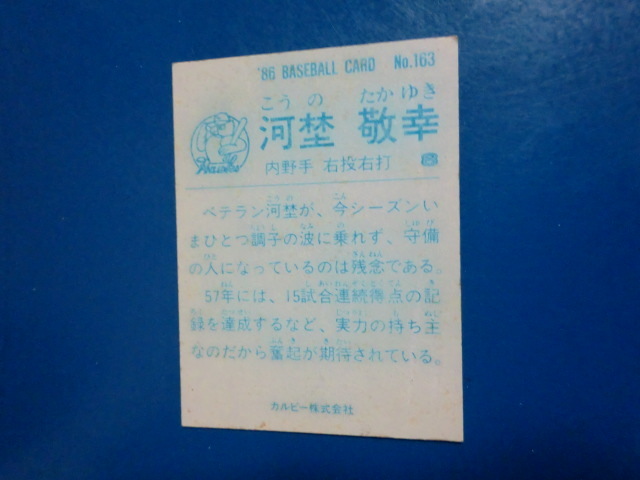 '86 BASEBALL CARD No.163
こうの たかゆき
河埜 敬幸
内野手 右投右打
Hawks
ベテラン河埜が、今シーズンい
まひとつ調子の波に乗れず、守備
の人になっているのは残念である。
57年には、15試合連続得点の記
録を達成するなど、実力の持ち主
なのだから奮起が期待されている。
カルビー株式会社